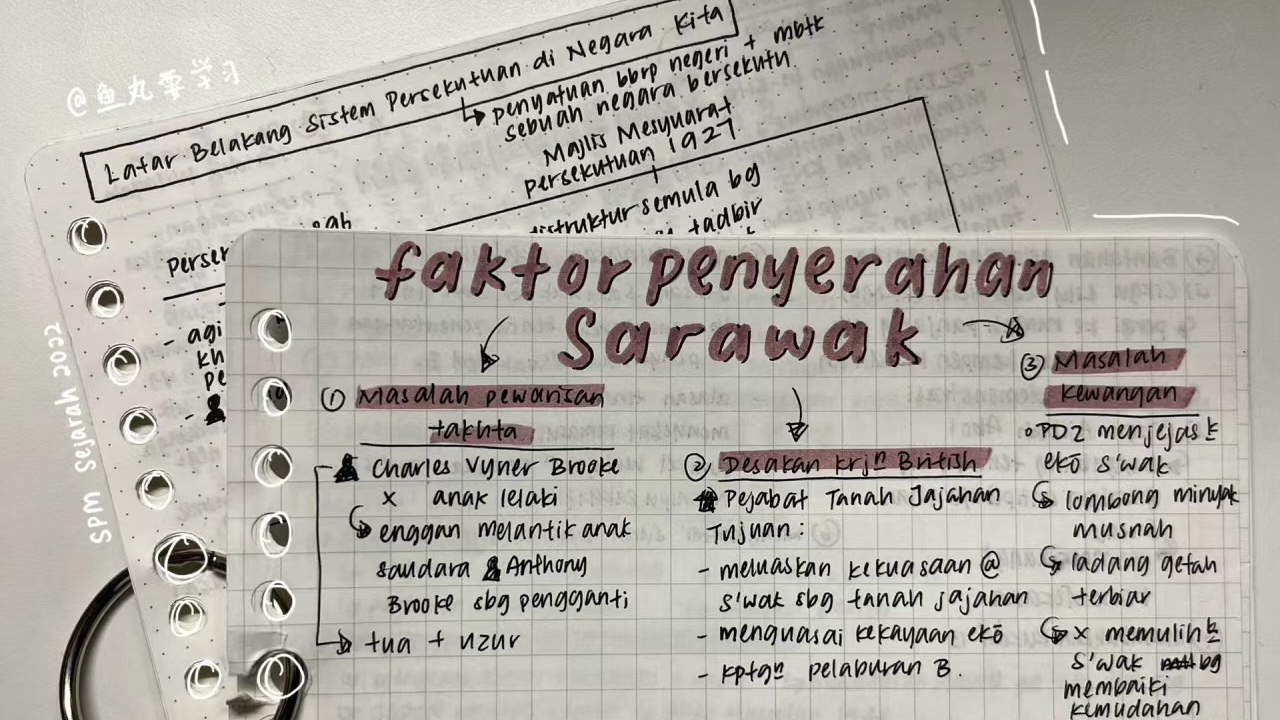 @鱼丸要学习
SPM Sejarah 2022
Latar Belakang Sistem Persekutuan di Negara Kita
↳ penyatuan bbrp negeri + mbtk
sebuah negara bersekutu
Majlis Mesyuarat
persekutuan 1927
struktur semula bg
tadbir
perser
- agi
kh
pe
-
faktor penyerahan
Sarawak
① Masalah pewarisan
takhta
Charles Vyner Brooke
x anak lelaki
↳ enggan melantik anak
saudara Anthony
Brooke sbg pengganti
↳ tua + uzur
② Desakan krjⁿ British
Pejabat Tanah Jajahan
Tujuan:
- meluaskan kekuasaan @
S'wak sbg tanah jajahan
- menguasai kekayaan ekō
- kptgⁿ pelaburan B.
③ Masalah
kewangan
◦ PD2 menjejas k
ekō S'wak
↳ lombong minyak
musnah
↳ ladang getah
terbiar
↳ x memulih k
S'wak bg
membaiki
kemudahan